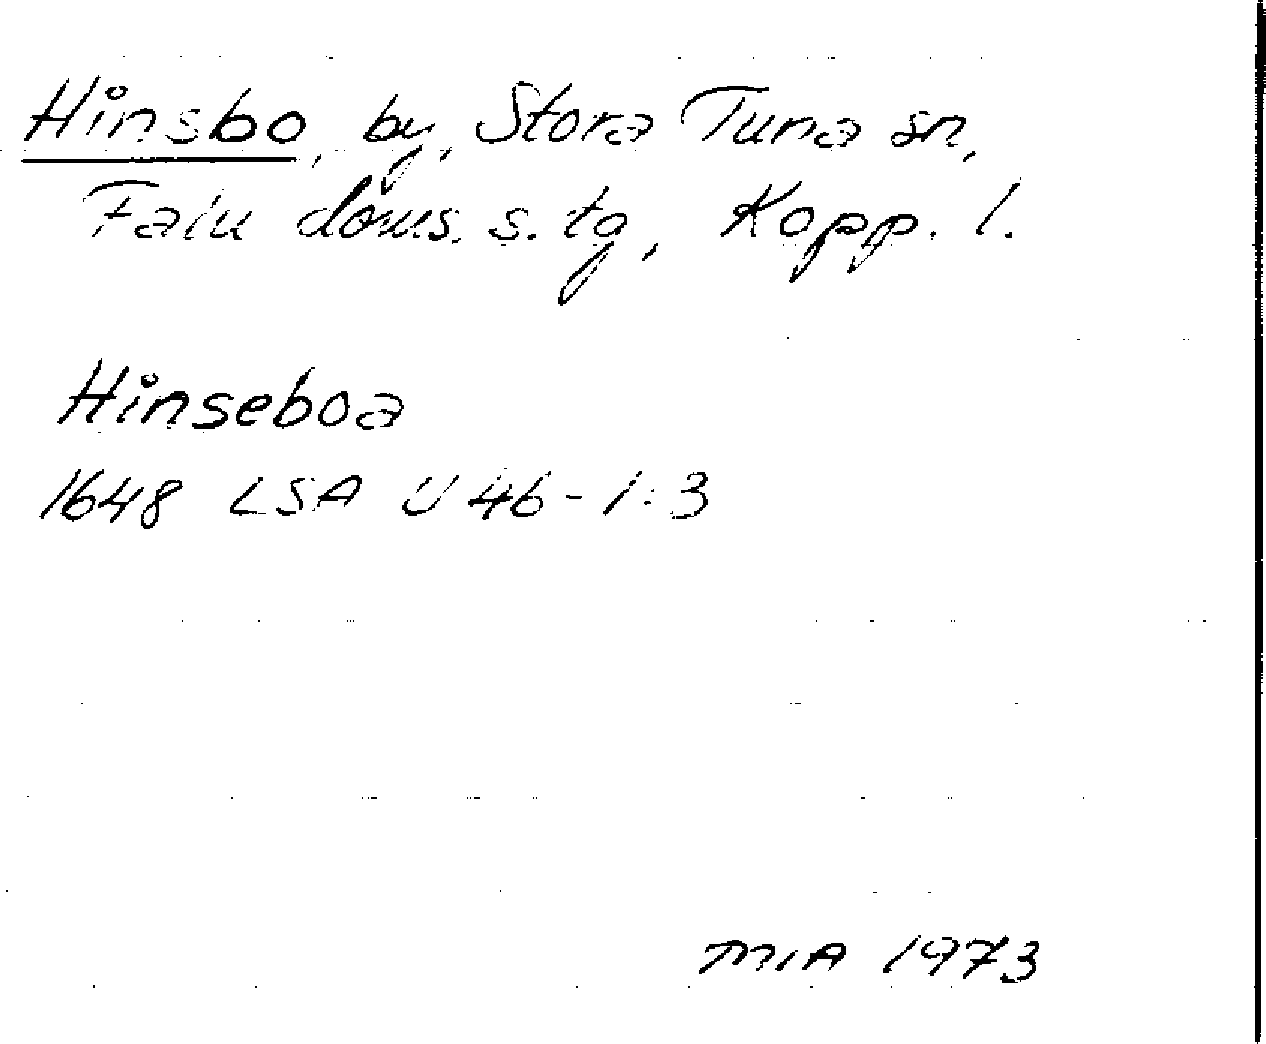 Hinsbo, by, Stora Tuna sn,
Falu doms. s. tg, Kopp. l.
Hinseboa
1648 LSA U 46-1:3
MIA 1973